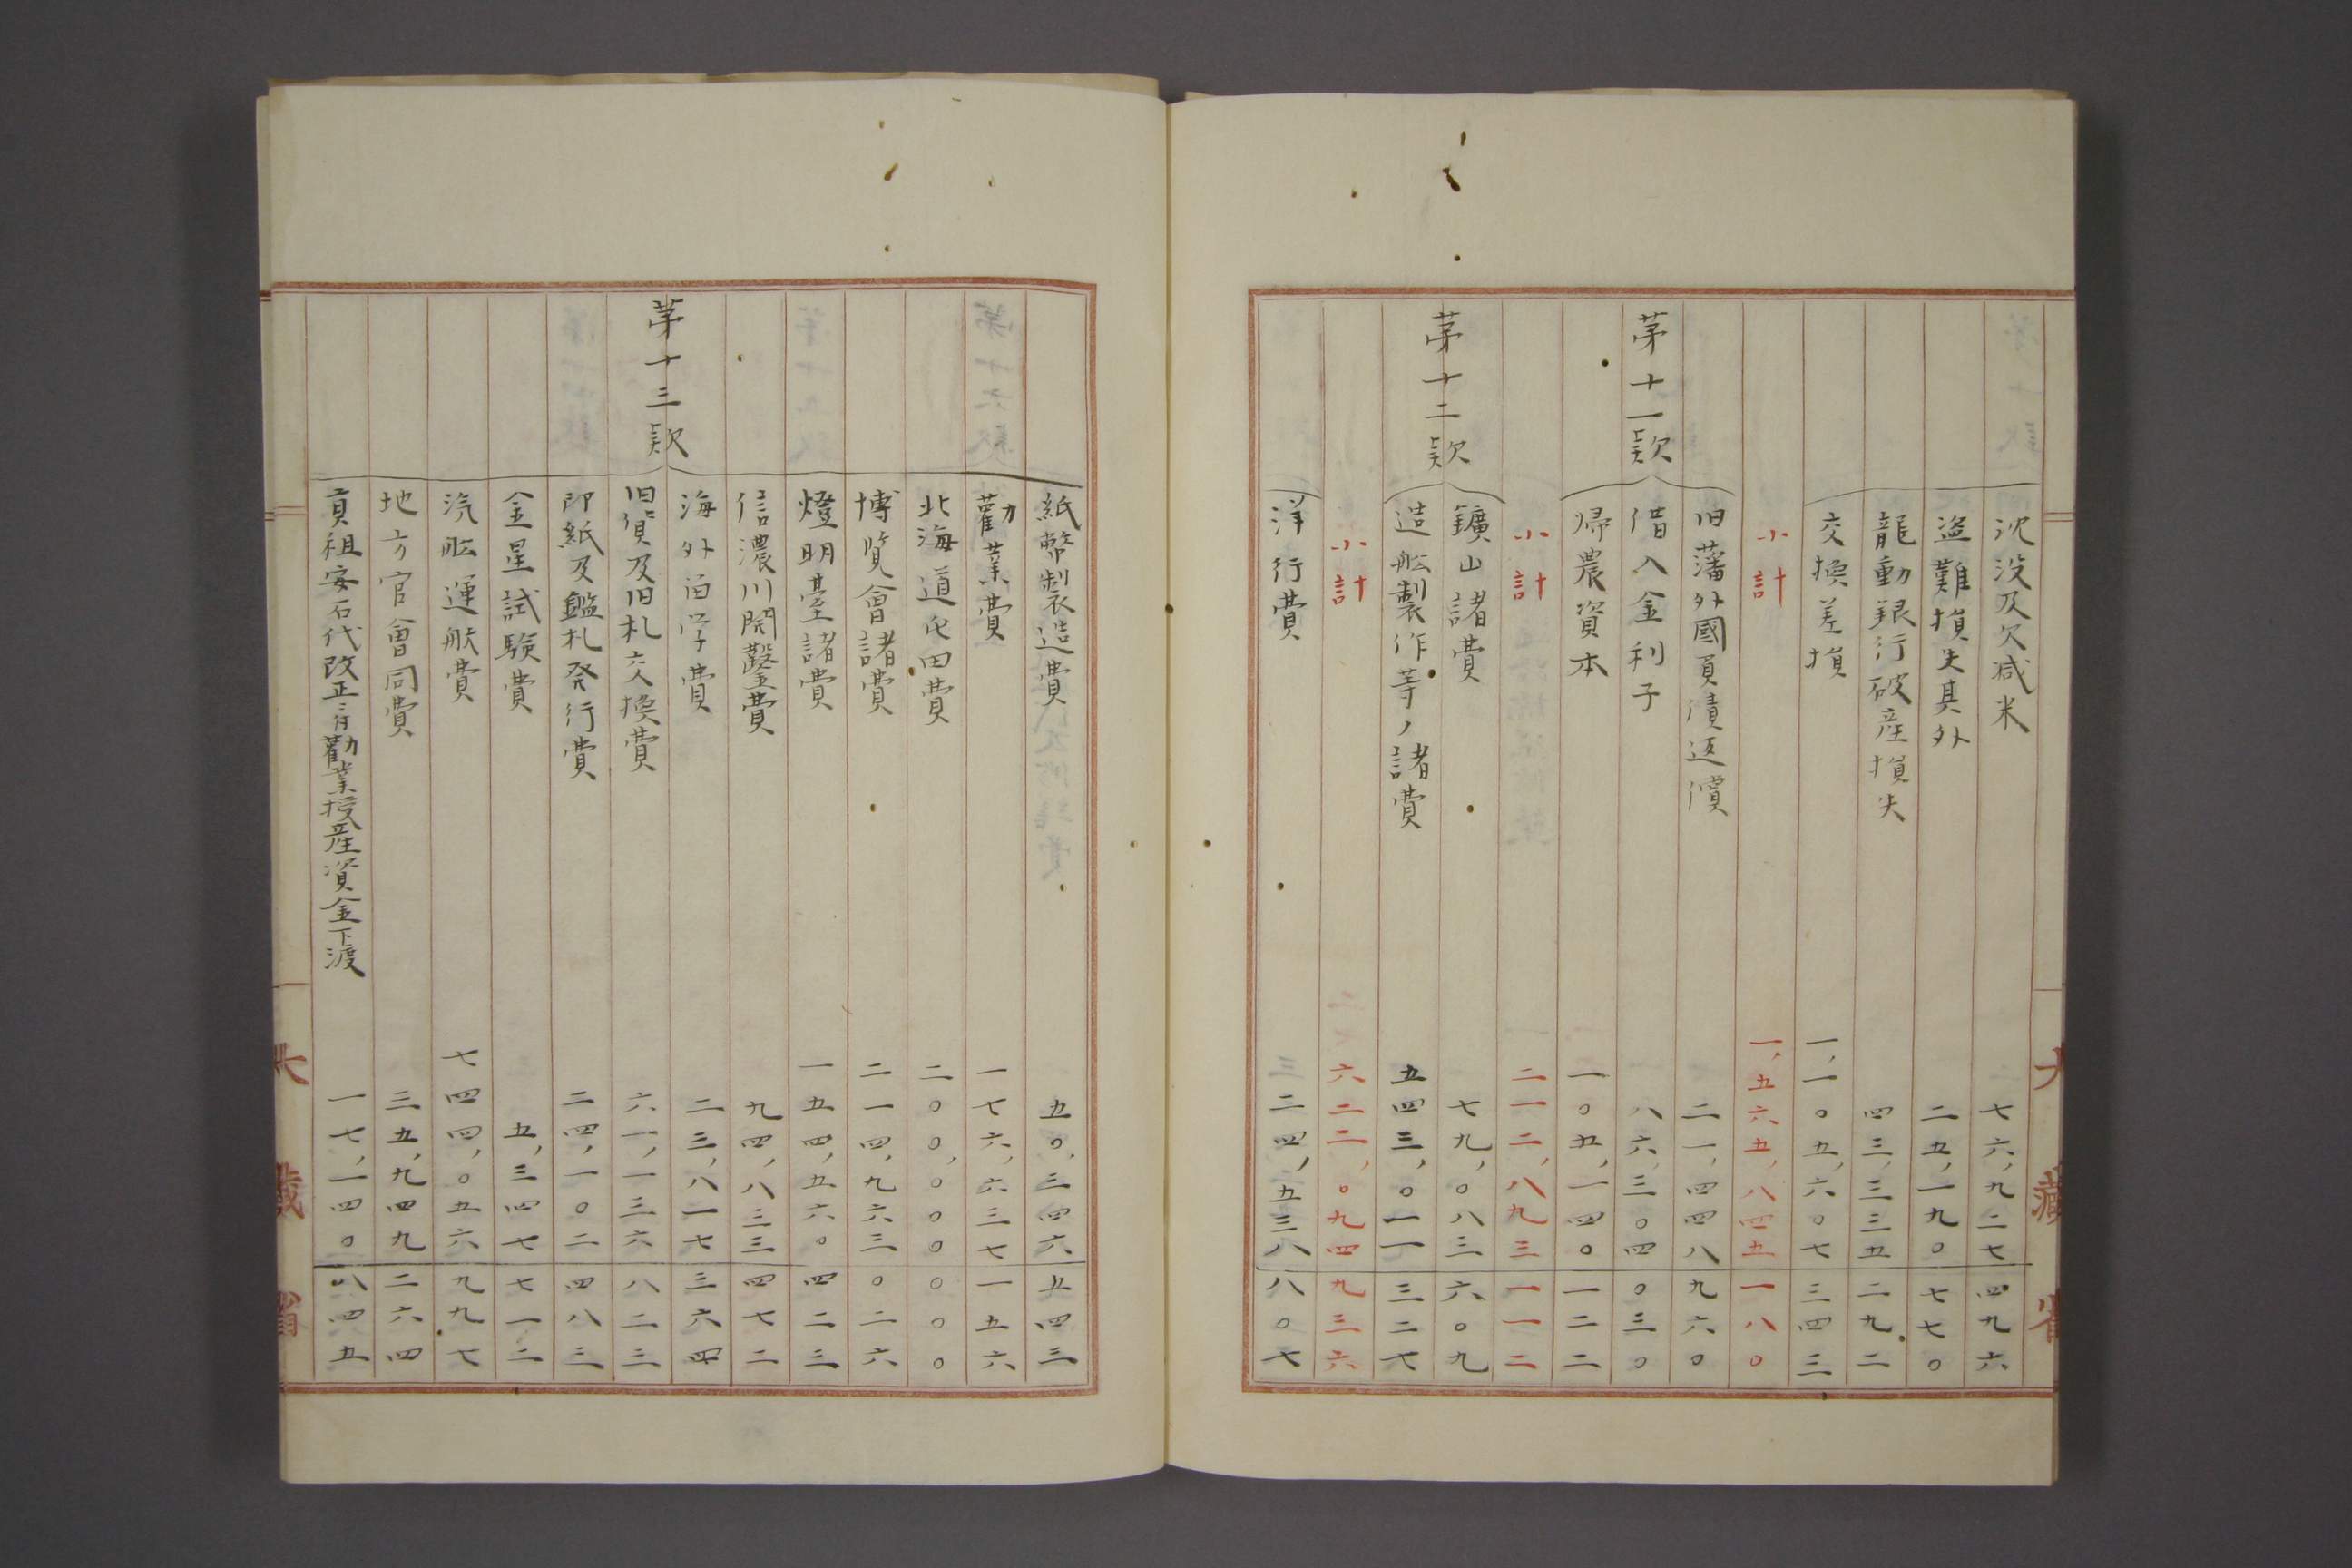 沈没及欠減米 七六,九二七四九六
盗難損失其外 二五,一九〇七七〇
龍動銀行破産損失 四三,三三五二九二
交換差損 一,一〇五,六〇七三四三
小計 一,五六五,八四五一八〇
第十一款
旧藩外國負債返償 二一,四四八九六〇
借入金利子 八六,三〇四〇三〇
帰農資本 一〇五,一四〇一二二
小計 二一二,八九三一一二
第十二款
鑛山諸費 七九,〇八三六〇九
造舩製作等ノ諸費 五四三,〇一一三二七
小計 六二二,〇九四九三六
洋行費 三二四,五三八八〇七
大藏省
紙幣製造費 五〇,三四六五四三
勸業費 一七六,六三七一五六
北海道屯田費 二〇〇,〇〇〇〇〇〇
博覧會諸費 二一四,九六三〇二六
燈明臺諸費 一五四,五六〇四二三
信濃川開鑿費 九四,八三三四七二
第十三款
海外留学費 二三,八一七三六四
旧貨及旧札交換費 六一,一三六八二三
印紙及鑑札発行費 二四,一〇二四八三
金星試験費 五,三四七七一二
汽舩運航費 七四四,〇五六九九七
地方官會同費 三五,九四九二六四
貢租安石代改正ニ付勸業授産資金下渡 一七,一四〇八四五
大藏省